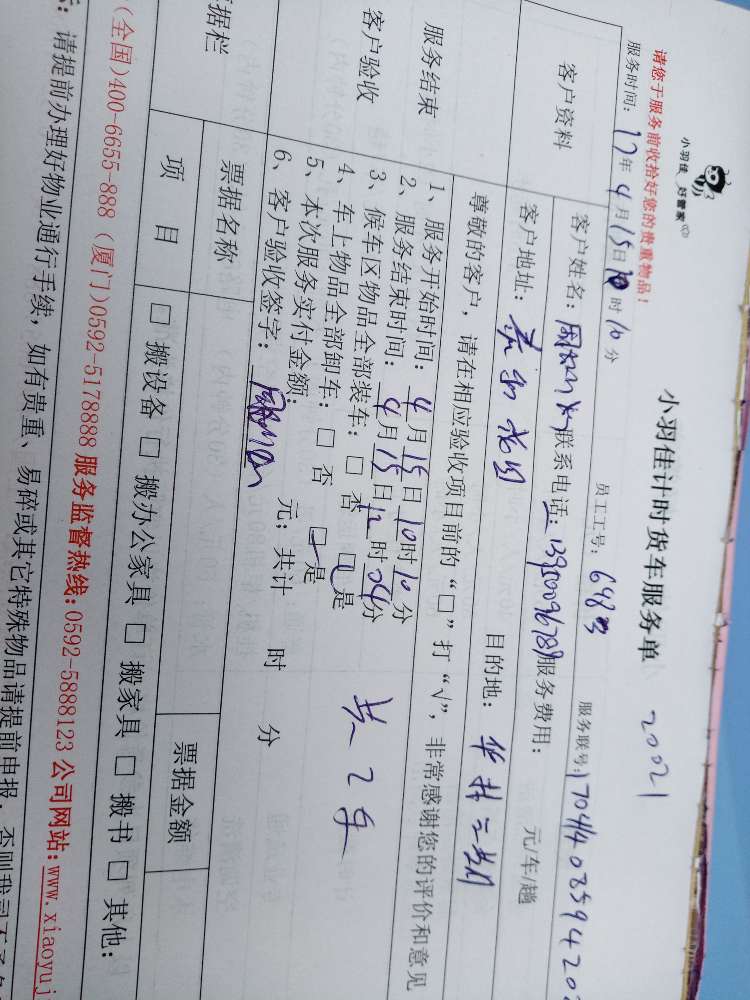 小羽佳 好管家
小羽佳计时货车服务单 20021
请您于服务前收拾好您的贵重物品!
服务时间: 17年4月15日10时10分 员工工号: 648 服务联号:
客户资料
客户姓名: 联系电话: 服务费用: 元/车/趟
客户地址: 目的地: 华林二期
尊敬的客户，请在相应验收项目前的“□”打“√”，非常感谢您的评价和意见
服务结束
客户验收
1、服务开始时间: 4月15日10时10分
2、服务结束时间: 4月15日12时04分
3、候车区物品全部装车: □ 否 □ 是
4、车上物品全部卸车: □ 否 □ 是
共2车
5、本次服务实付金额: 元; 共计 时 分
6、客户验收签字:
据栏
票据名称 票据金额
项 目 □ 搬设备 □ 搬办公家具 □ 搬家具 □ 搬书 □ 其他:
(全国)400-6655-888 (厦门)0592-5178888 服务监督热线:0592-5888123 公司网站:www.xiaoyuj
: 请提前办理好物业通行手续，如有贵重、易碎或其它特殊物品请提前申报，否则我司不予